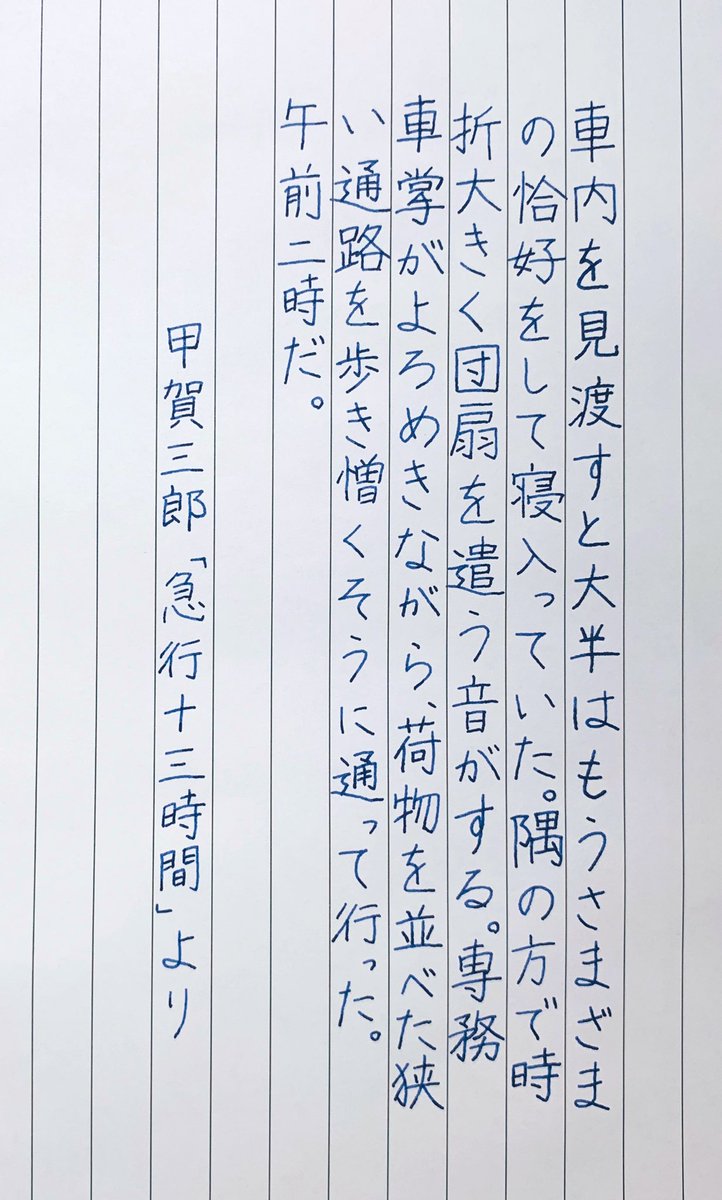 車内を見渡すと大半はもうさまざま
の恰好をして寝入っていた。隅の方で時
折大きく団扇を遣う音がする。専務
車掌がよろめきながら、荷物を並べた狭
い通路を歩き憎くそうに通って行った。
午前二時だ。
甲賀三郎「急行十三時間」より